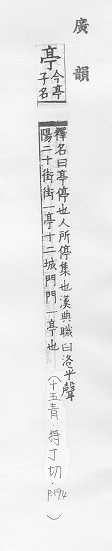 廣韻
亭
今亭
子名
釋名曰亭停也人所停集也漢典職曰洛
陽二十街街一亭十二城門門一亭也
平聲
（十五青．特丁切．P.194）